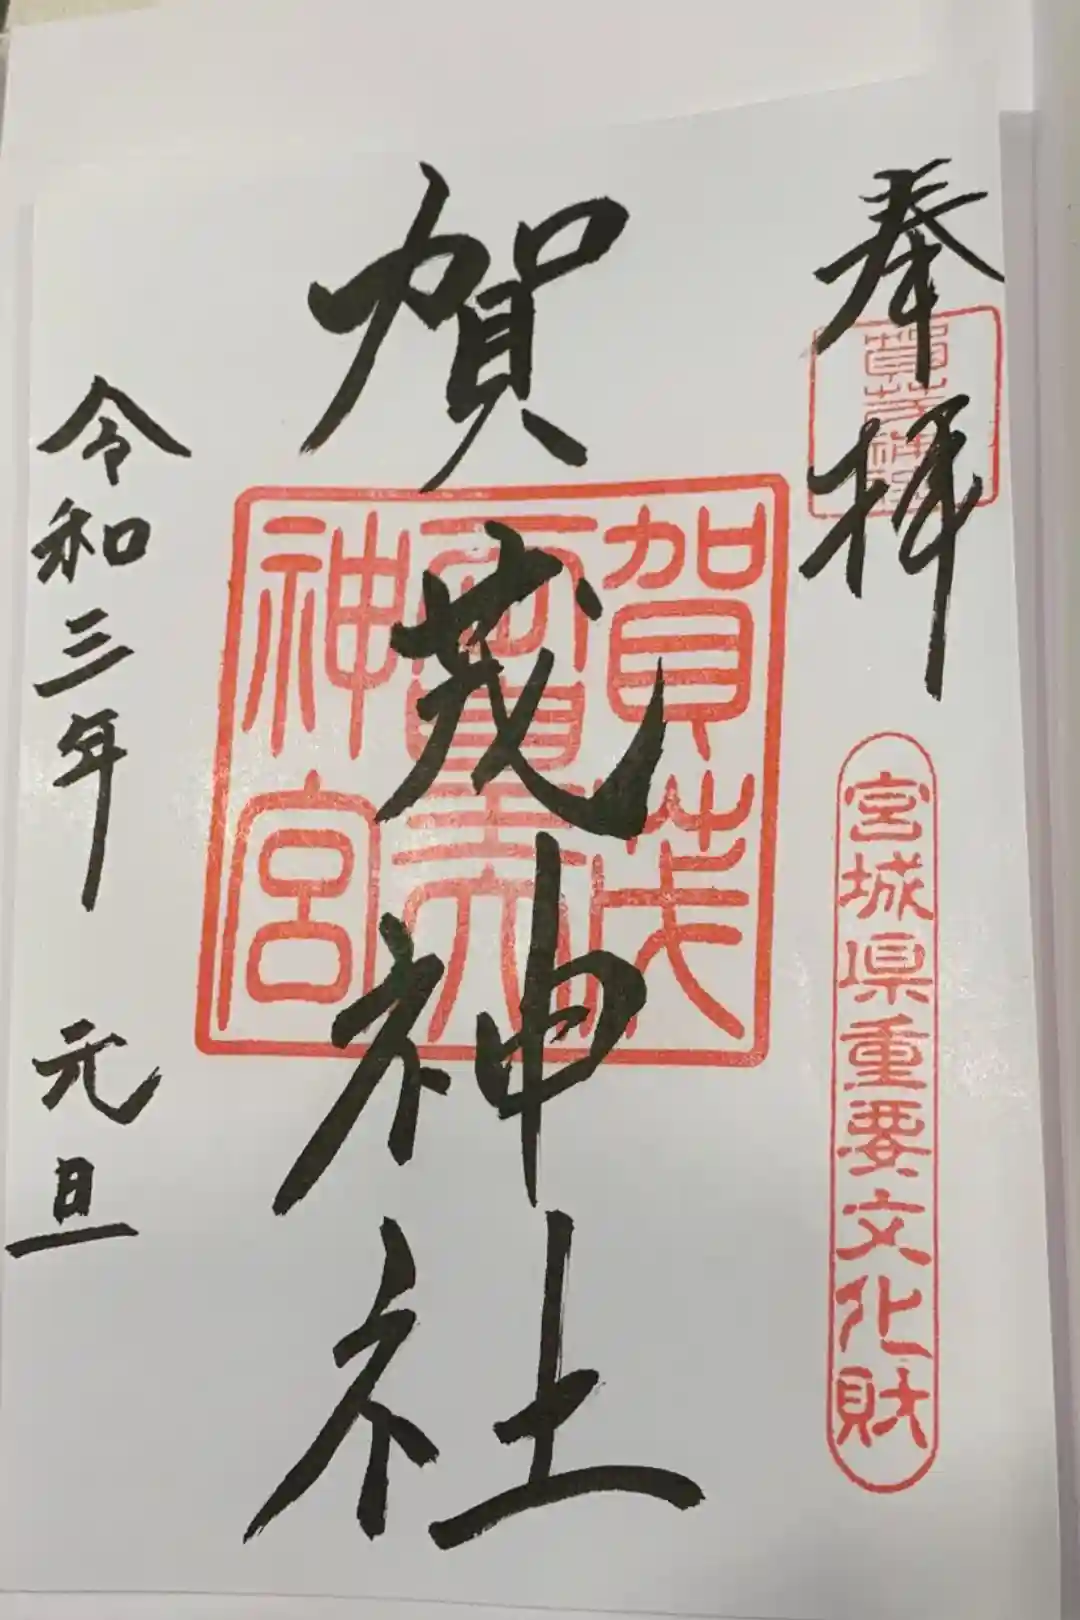 奉拝
宮城県重要文化財
賀茂神社
賀茂
皇大
神宮
令和三年 元旦